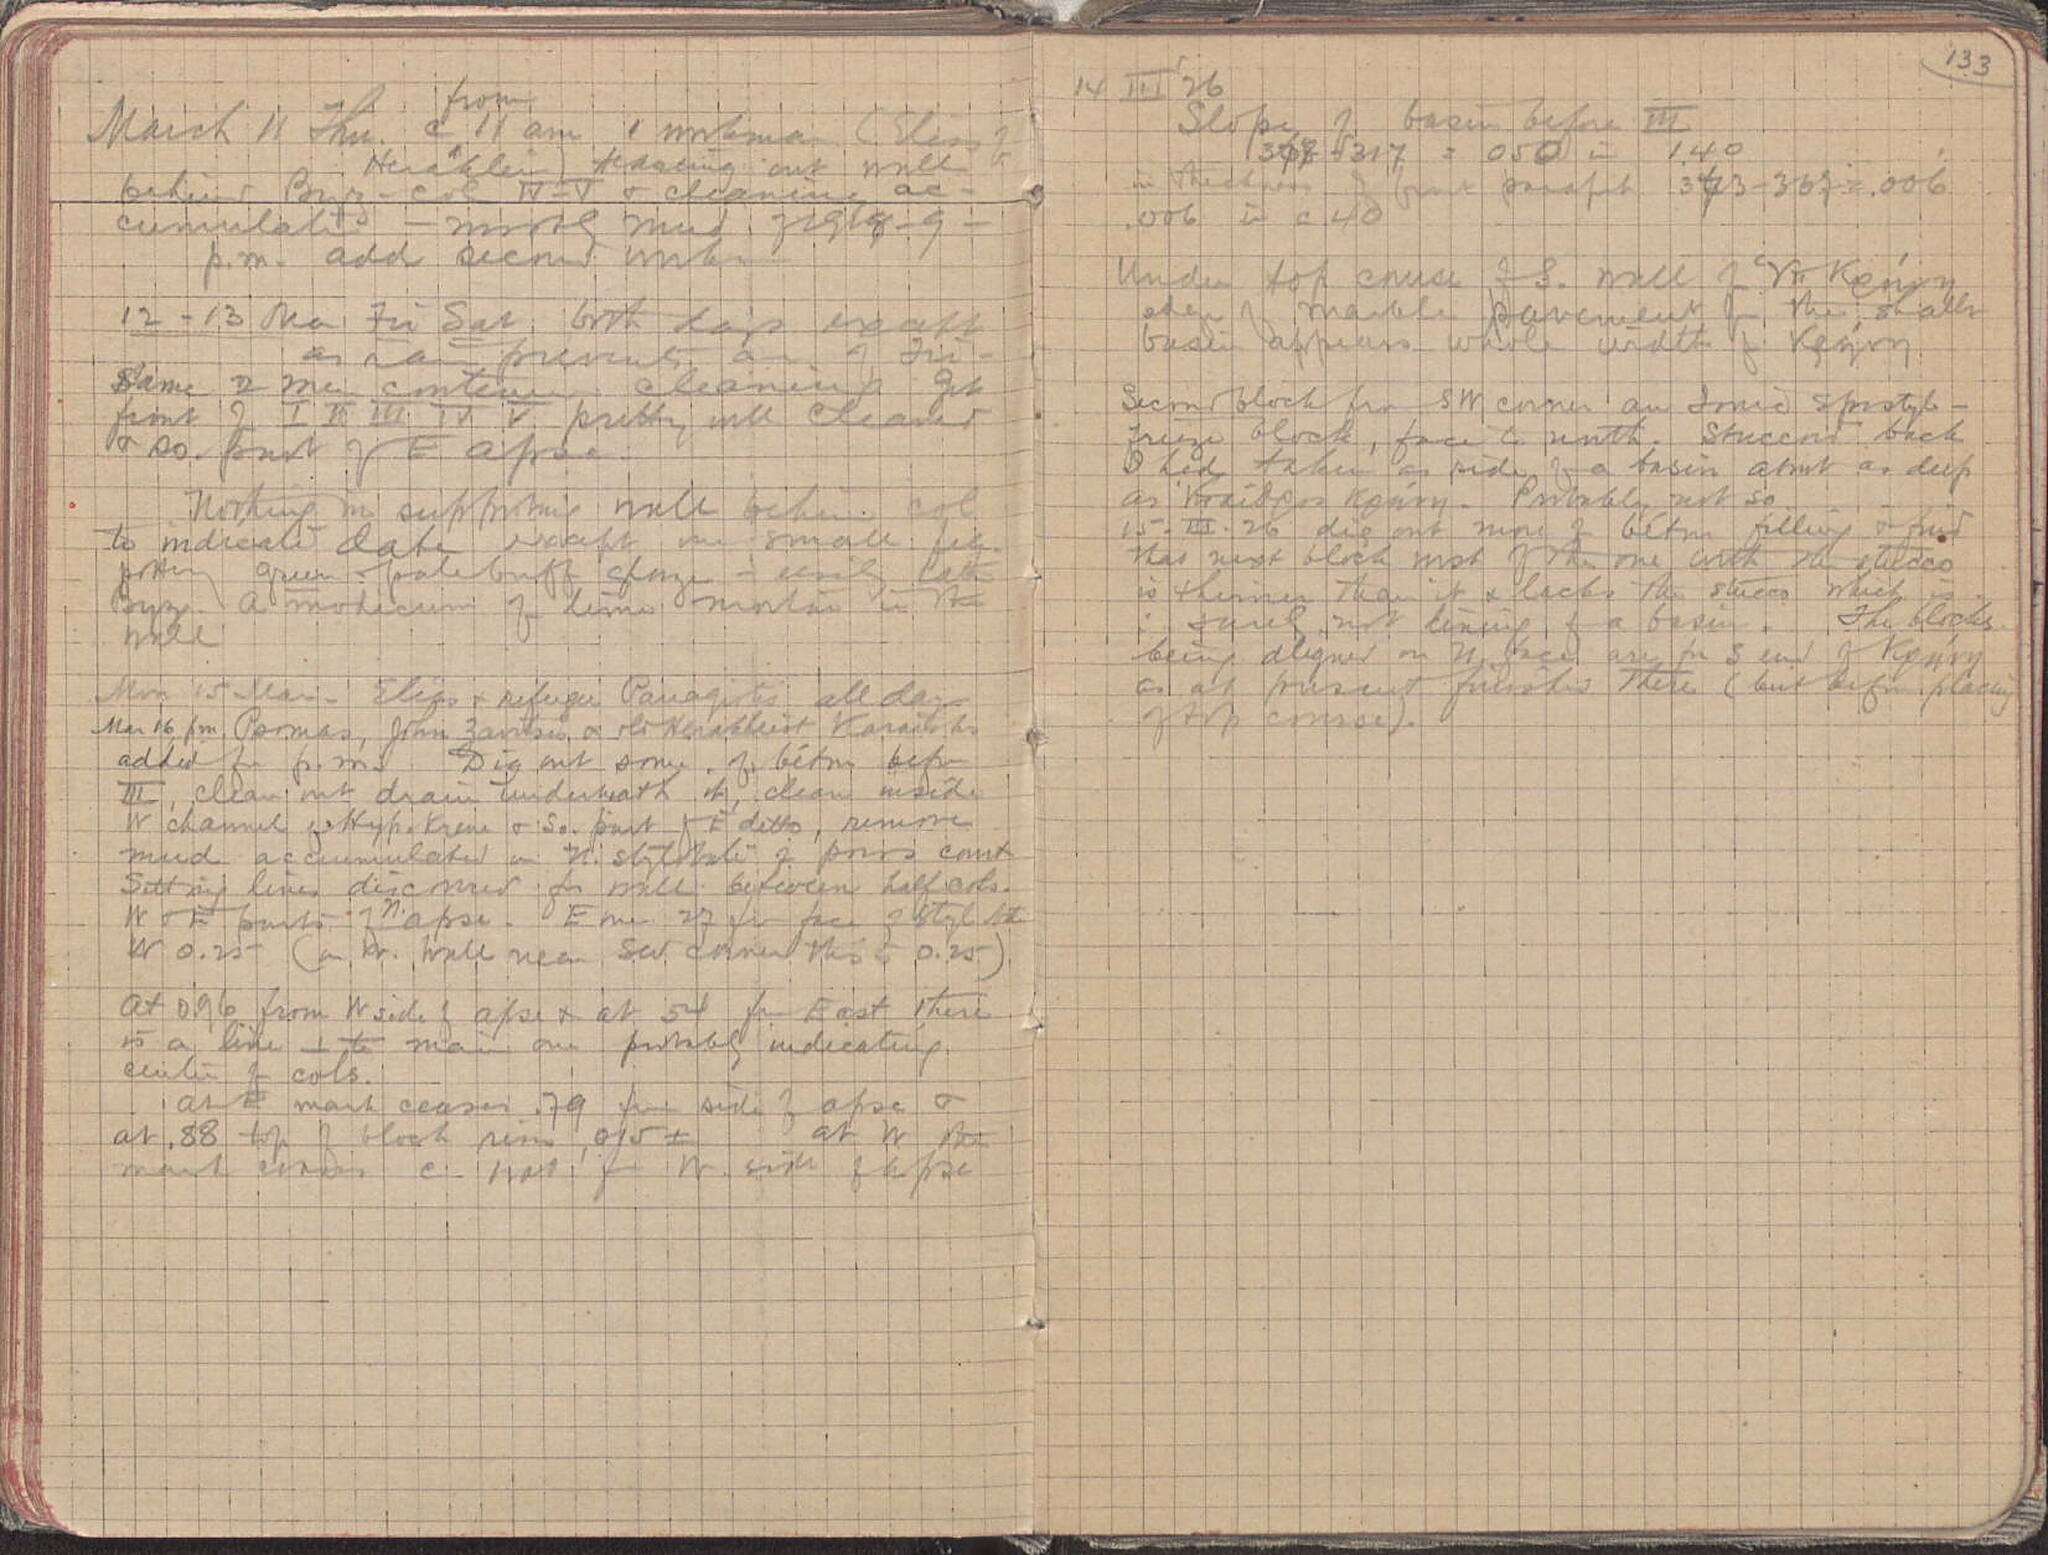 from
March 11 Thu. c 11 am 1 workman (Elias of
Heraklein) teasing out wall
behind Byz. col IV-V & cleaning ac-
cumulation - mostly mud of 1918-9 -
p.m. add second workman
12-13 Mar Fri Sat both days except
as rain prevents of Fri-
Same 2 men continue cleaning Get
front of I II III IV V pretty well cleared
& so. part of E apse.
Nothing in supporting wall behind col
to indicate date except one small
green & pale buff glaze - easily late
Byz. A modicum of lime mortar in the
wall
Mon 15 Mar - Elias & refugee Panagiotis all day
Mar 16 pm Psomas, John & old Herakleiot
added for p.m. Dig out some of béton before
III, clean out drain underneath it, clean inside
W channel of Hyp. Krene & So. part of E ditto, remove
mud accumulated on N. stylobate of poros court
Setting lines discovered for wall between half cols.
W & E parts of N. apse. E one 27 from face of stylobate
W 0.25 (on W. wall near SW corner this is 0.25)
At 0.96 from W side of apse & at 54 from East there
is a line ⊥ to main one probably indicating
center of cols.
at E mark ceases .79 from side of apse &
at .88 top of block rises .015 ± at W the
mark c. from W. side of apse
133
14 III '26
Slope of basin before III
367 - 317 = 050 in 1.40
in thickness of front parapet 373-367 = .006
.006 in c 40
Under top course of S. wall of Υπ Κρήνη
of marble pavement of the
basin appears whole width of Κρήνη
Second block from SW corner an Ionic epistyle-
frieze block, face to north. Stuccoed back
I had taken as side of a basin about as deep
as Κρήνη. Probably not so
15-III-26 dig out more of béton filling & find
that next block west of the one with the stucco
is thinner than it & lacks the stucco which is
∴ surely not lining of a basin. The blocks
being aligned on N. face are for S end of Κρήνη
as at present finishes there (but before placing
of top course).